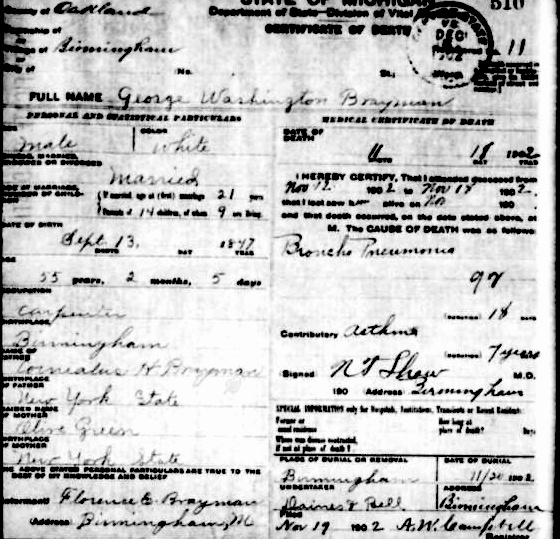 County of Oakland
STATE OF MICHIGAN
Department of State—Division of Vital
CERTIFICATE OF DEATH
510
DEC
11
Township of
Village of Birmingham
City of
No.
St.;
FULL NAME George Washington Brayman
PERSONAL AND STATISTICAL PARTICULARS
MEDICAL CERTIFICATE OF DEATH
COLOR
Male
White
DATE OF DEATH
11 18 1902
MONTH DAY YEAR
SINGLE, MARRIED, WIDOWED OR DIVORCED
Married
I HEREBY CERTIFY, That I attended deceased from
Nov 12 1902 to Nov 18 1902.
AGE AT MARRIAGE, NUMBER OF CHILD-
If married, age at (first) marriage 21 years
Parents of 14 children, of whom 9 are living
that I last saw alive on Nov 190
and that death occurred, on the date stated above, at
M. The CAUSE OF DEATH was as follows
DATE OF BIRTH
Sept 13, 1847
MONTH DAY YEAR
Broncho Pneumonia
97
AGE
55 years, 2 months, 5 days
(DURATION) 18 DAYS
OCCUPATION
Carpenter
Contributory Asthma
BIRTHPLACE
Birmingham
(DURATION) 7 years
NAME OF FATHER
Cornealus H Brayman
Signed N T Shaw M.D.
BIRTHPLACE OF FATHER
New York State
190 Address Birmingham
MAIDEN NAME OF MOTHER
Olive Green
SPECIAL INFORMATION only for Hospitals, Institutions, Transients or Recent Residents
Former or usual residence
How long at place of death? Days
Where was disease contracted, if not at place of death?
BIRTHPLACE OF MOTHER
New York State
PLACE OF BURIAL OR REMOVAL
DATE OF BURIAL
Birmingham
11/20 1902
THE ABOVE STATED PERSONAL PARTICULARS ARE TRUE TO THE BEST OF MY KNOWLEDGE AND BELIEF
UNDERTAKER
ADDRESS
Daines & Bell
Birmingham
Informant Florence E. Brayman
(Address) Birmingham, M
Filed
Nov 19 1902 A.W. Campbell
Registrar